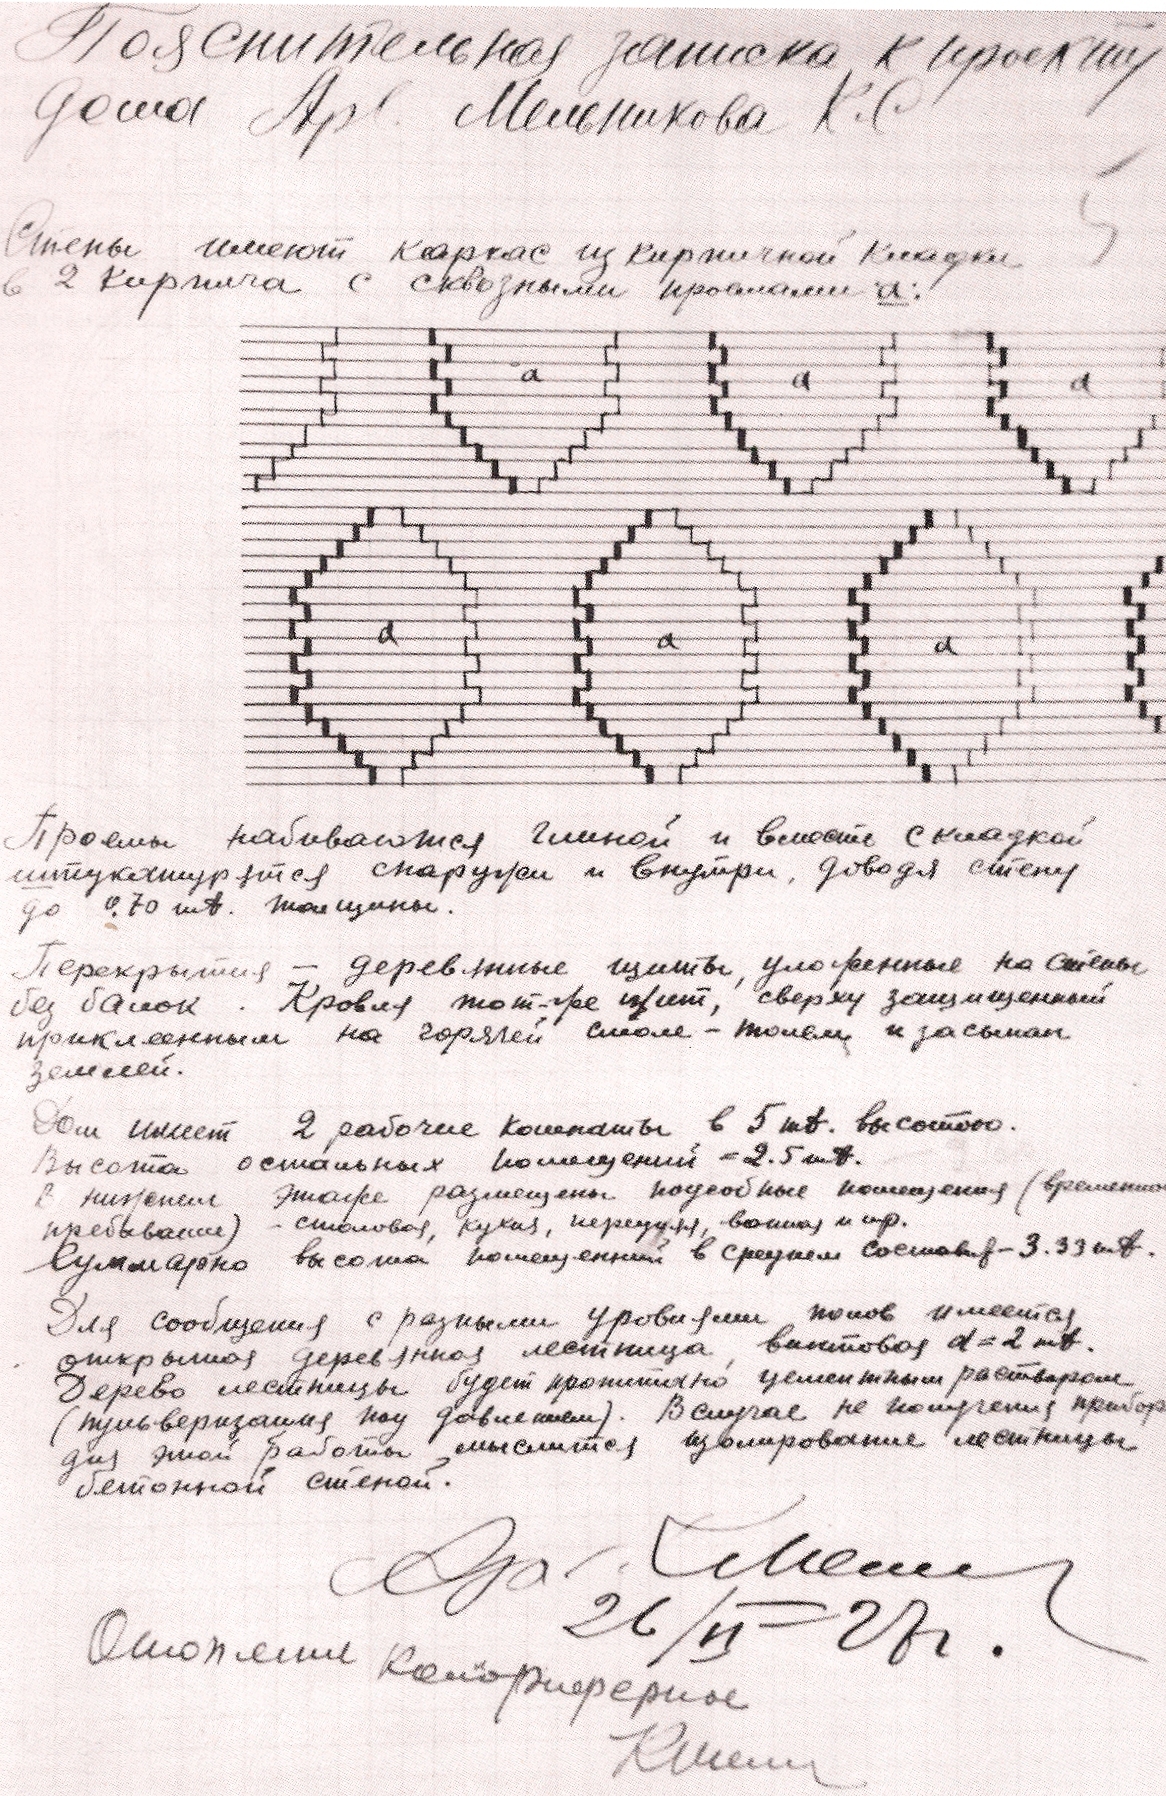 Пояснительная записка к проекту
дома Арх. Мельникова К.С
Стены имеют каркас из кирпичной кладки
в 2 кирпича с сквозными проемами "а":
а а а
а а а
Проемы набиваются глиной и вместе с кладкой
штукатурятся снаружи и внутри, доводя стену
до 0.70 mt. толщины.
Перекрытия — деревянные щиты, уложенные на стены
без балок. Кровля тот-же щит, сверху защищенный
приклеенным на горячей смоле - толем и засыпан
землей.
Дом имеет 2 рабочие комнаты в 5 mt. высотою.
Высота остальных помещений = 2.5 mt.
В нижнем этаже размещены подсобные помещения (временное
пребывание) - столовая, кухня, передняя, ванная и пр.
Суммарно высота помещений в среднем составл - 3.33 mt.
Для сообщения с разными уровнями полов имеется
открытая деревянная лестница, винтовая d = 2 mt.
Дерево лестницы будет пропитано цементным раствором
(пульверизация под давлением). В случае не получения прибор
для этой работы мыслится изолирование лестницы
бетонной стеной.
Арх. КМельн
26/II 27г.
Отопление калориферное
КМельн